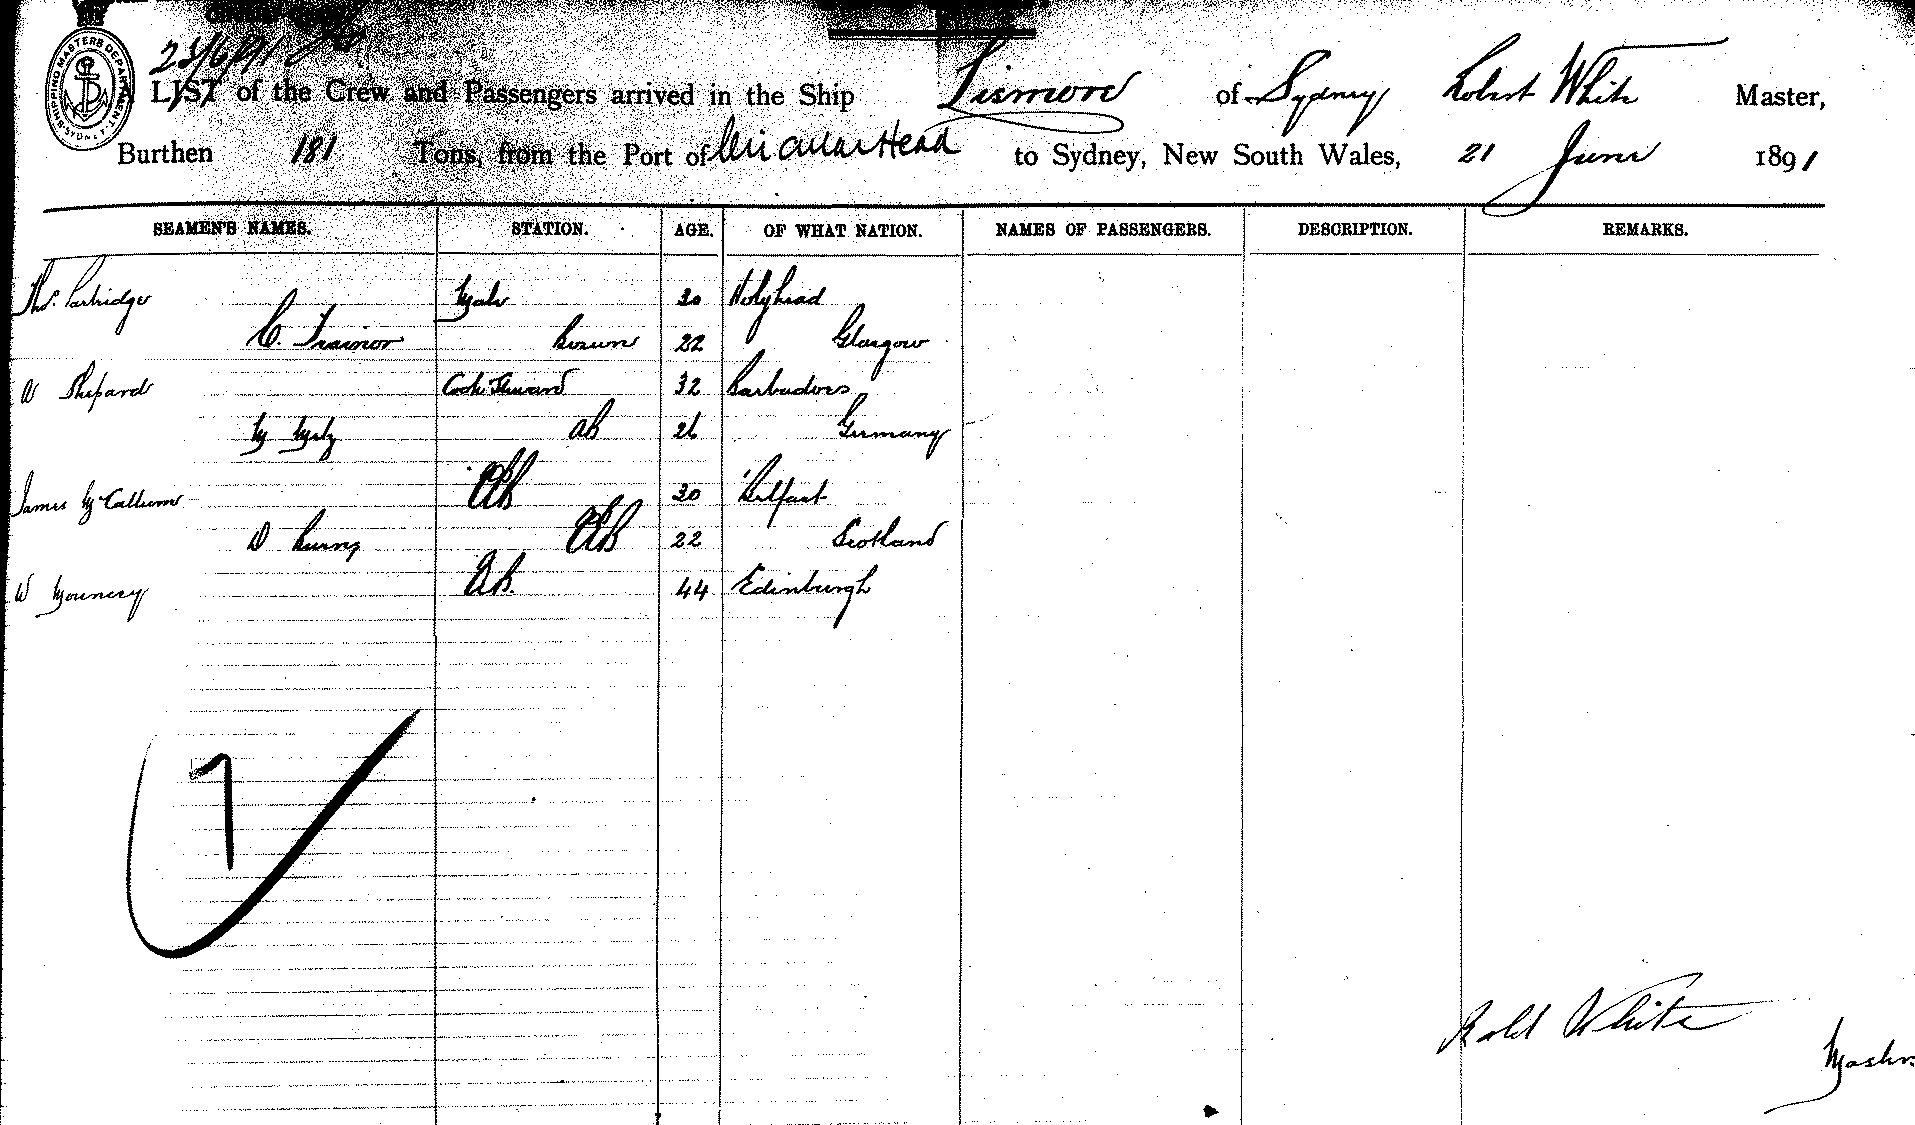 SHIPPING MASTERS DEPARTMENT SYDNEY
23/6/91
A LIST of the Crew and Passengers arrived in the Ship Lismore of Sydney Robert White Master,
Burthen 181 Tons, from the Port of Head to Sydney, New South Wales, 21 June 1891
SEAMEN'S NAMES. STATION. AGE. OF WHAT NATION. NAMES OF PASSENGERS. DESCRIPTION. REMARKS.
Thos. Partridge Mate 30 Holyhead
C. Trainor Bosun 22 Glasgow
W Shepard Cook Steward 32 Barbadoes
M AB 26 Germany
James McCallum AB 30 Belfast
D Burns AB 22 Scotland
W AB. 44 Edinburgh
7
Robt White
Master